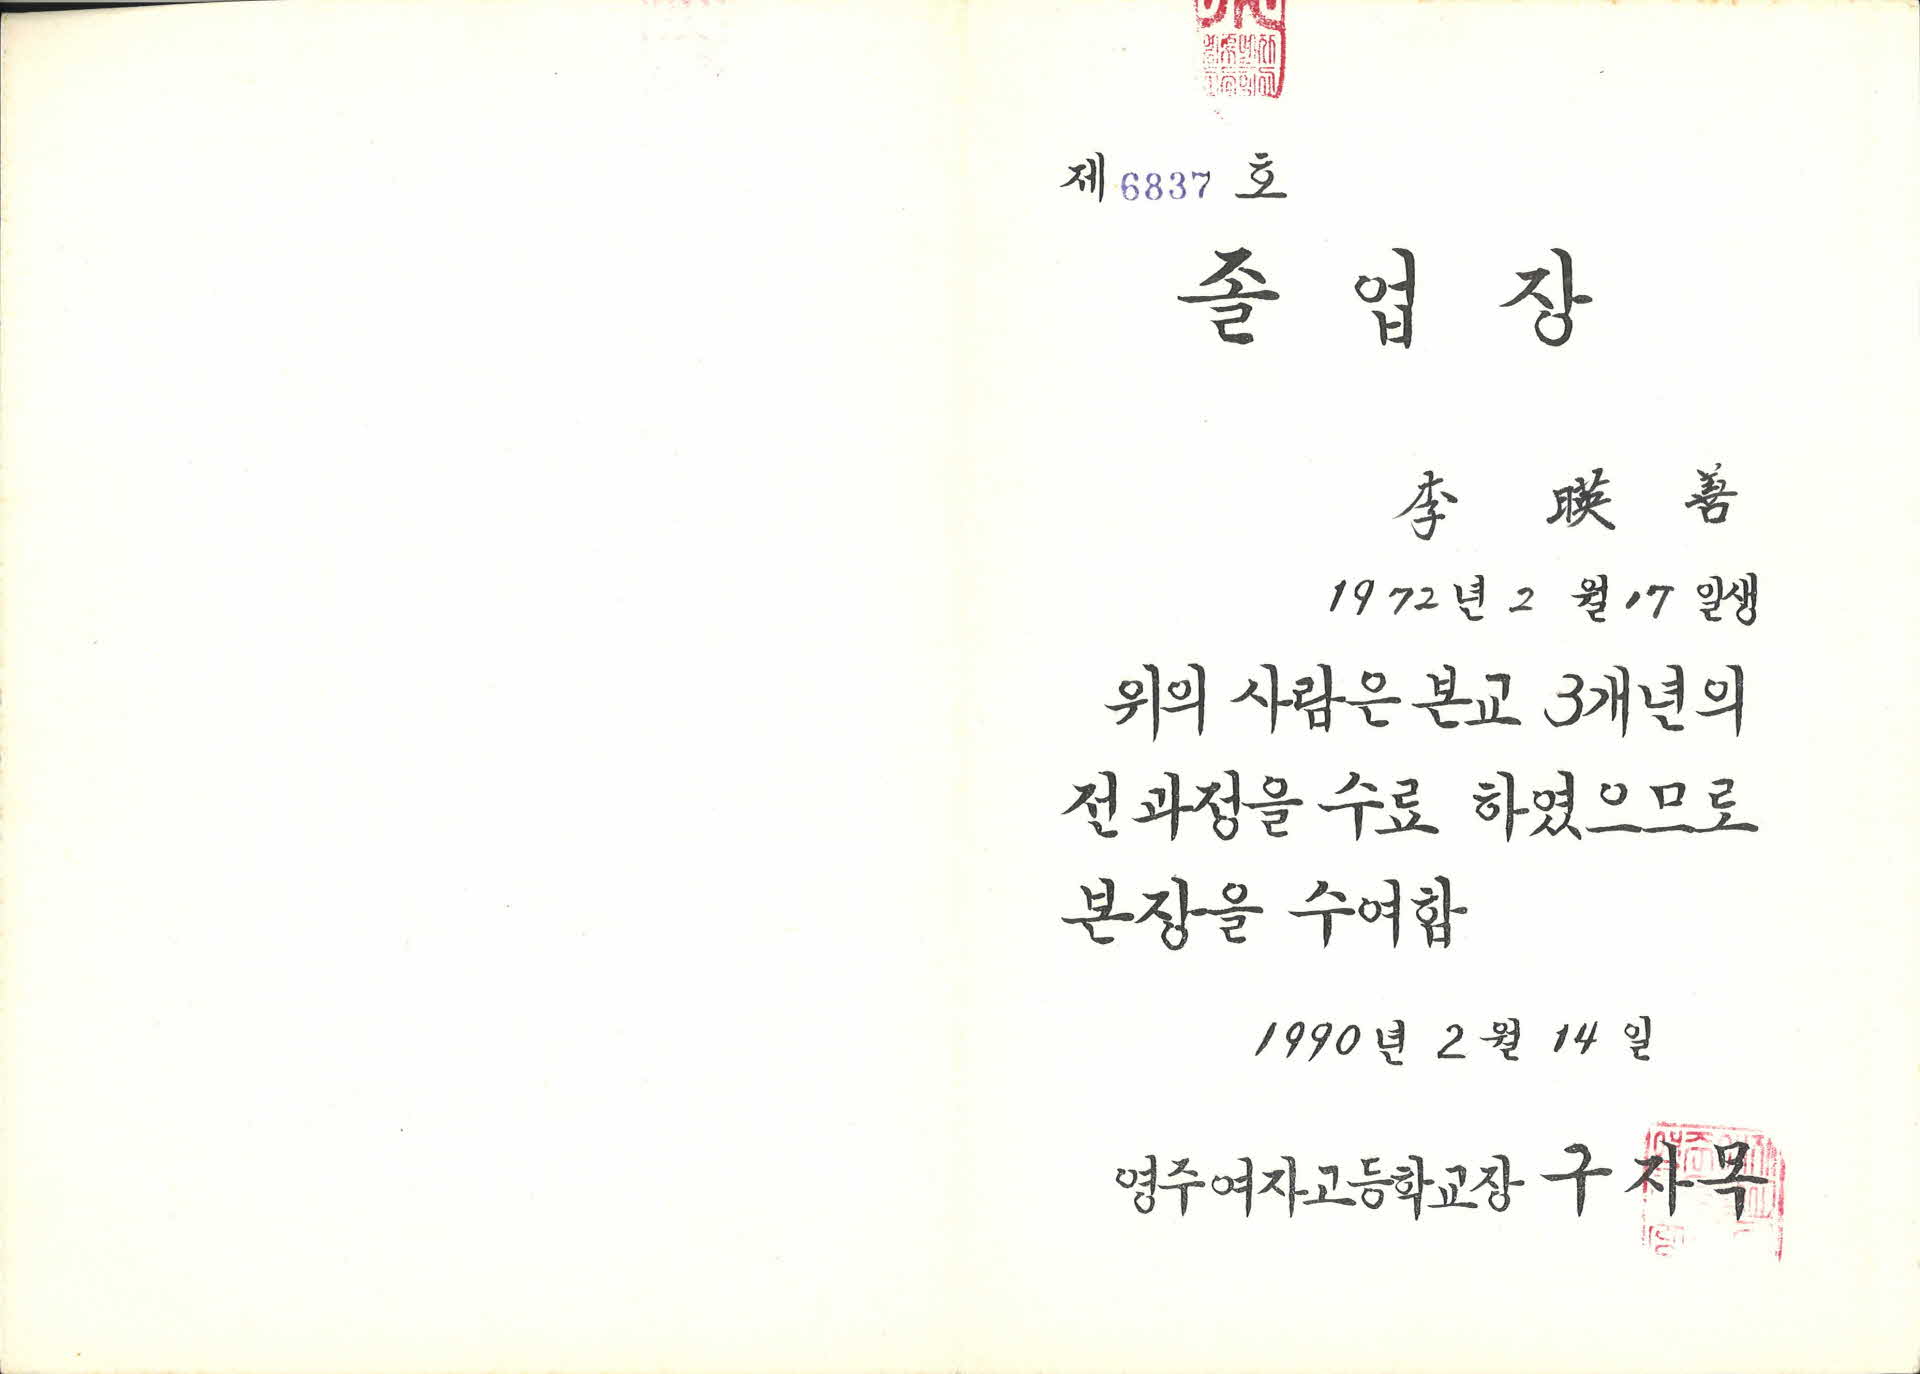 제 6837 호
졸 업 장
李 暎 善
1972년 2 월 17 일생
위의 사람은 본교 3개년의
전과정을 수료 하였으므로
본장을 수여함
1990년 2월 14 일
영주여자고등학교장 구 자 목